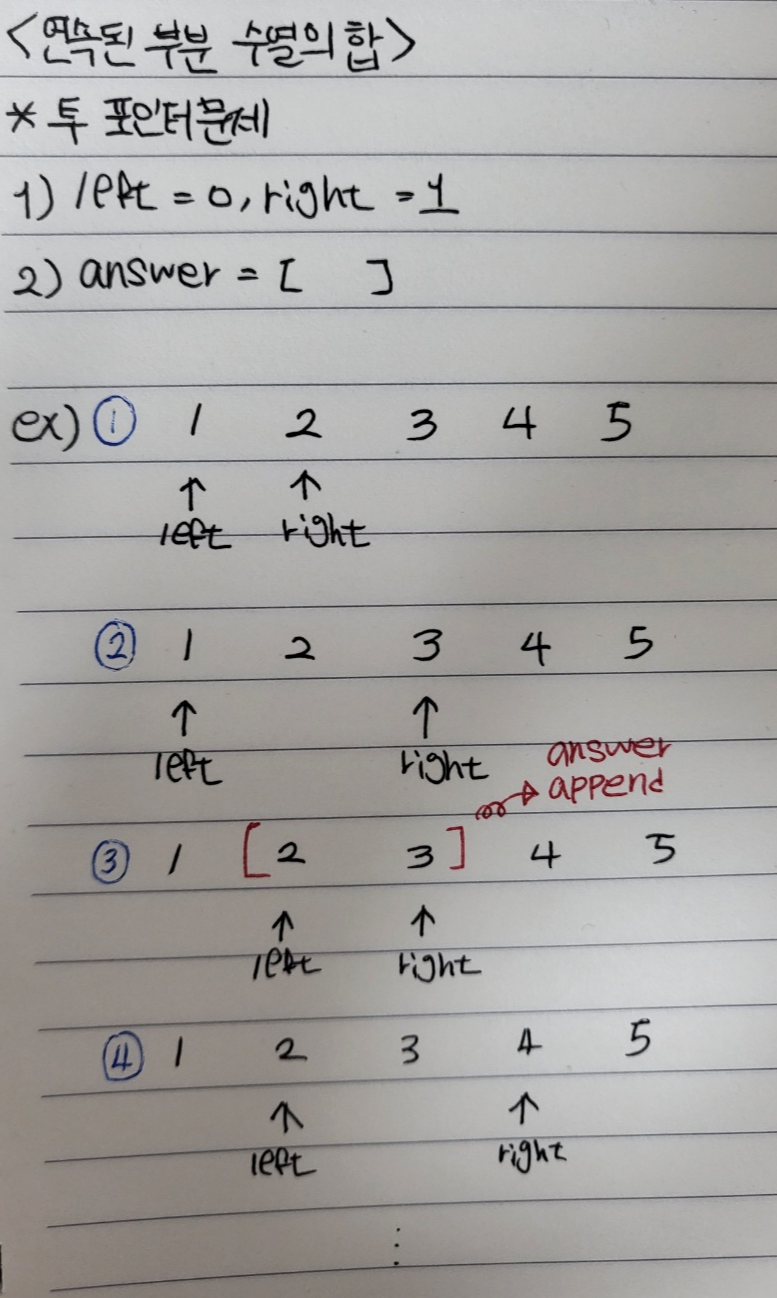 <연속된 부분 수열의 합>
* 투 포인터 문제
1) left = 0, right = 1
2) answer = [ ]
ex) ① 1 2 3 4 5
↑ ↑
left right
② 1 2 3 4 5
↑ ↑
left right
answer
append
③ 1 [2 3] 4 5
↑ ↑
left right
④ 1 2 3 4 5
↑ ↑
left right
⋮